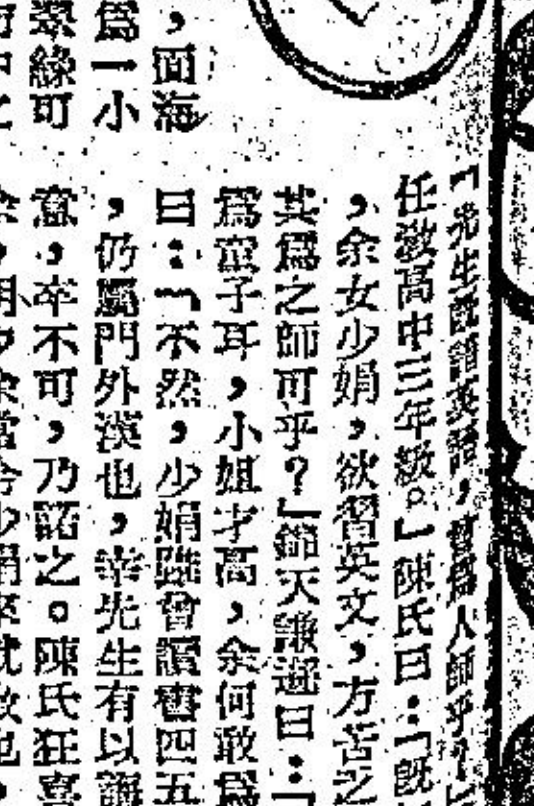 「先生旣諳英語，曾爲人師乎？」
任敎高中三年級。」陳氏曰：「旣
，余女少娟，欲習英文，方苦之
其爲之師可乎？」錦天謙遜曰：「
爲童子耳，小姐才高，余何敢爲
曰：「不然，少娟雖曾讀書四五
，仍屬門外漢也，幸先生有以誨
意，卒不可，乃諾之。陳氏狂喜
，面海
爲一小
翠綠可